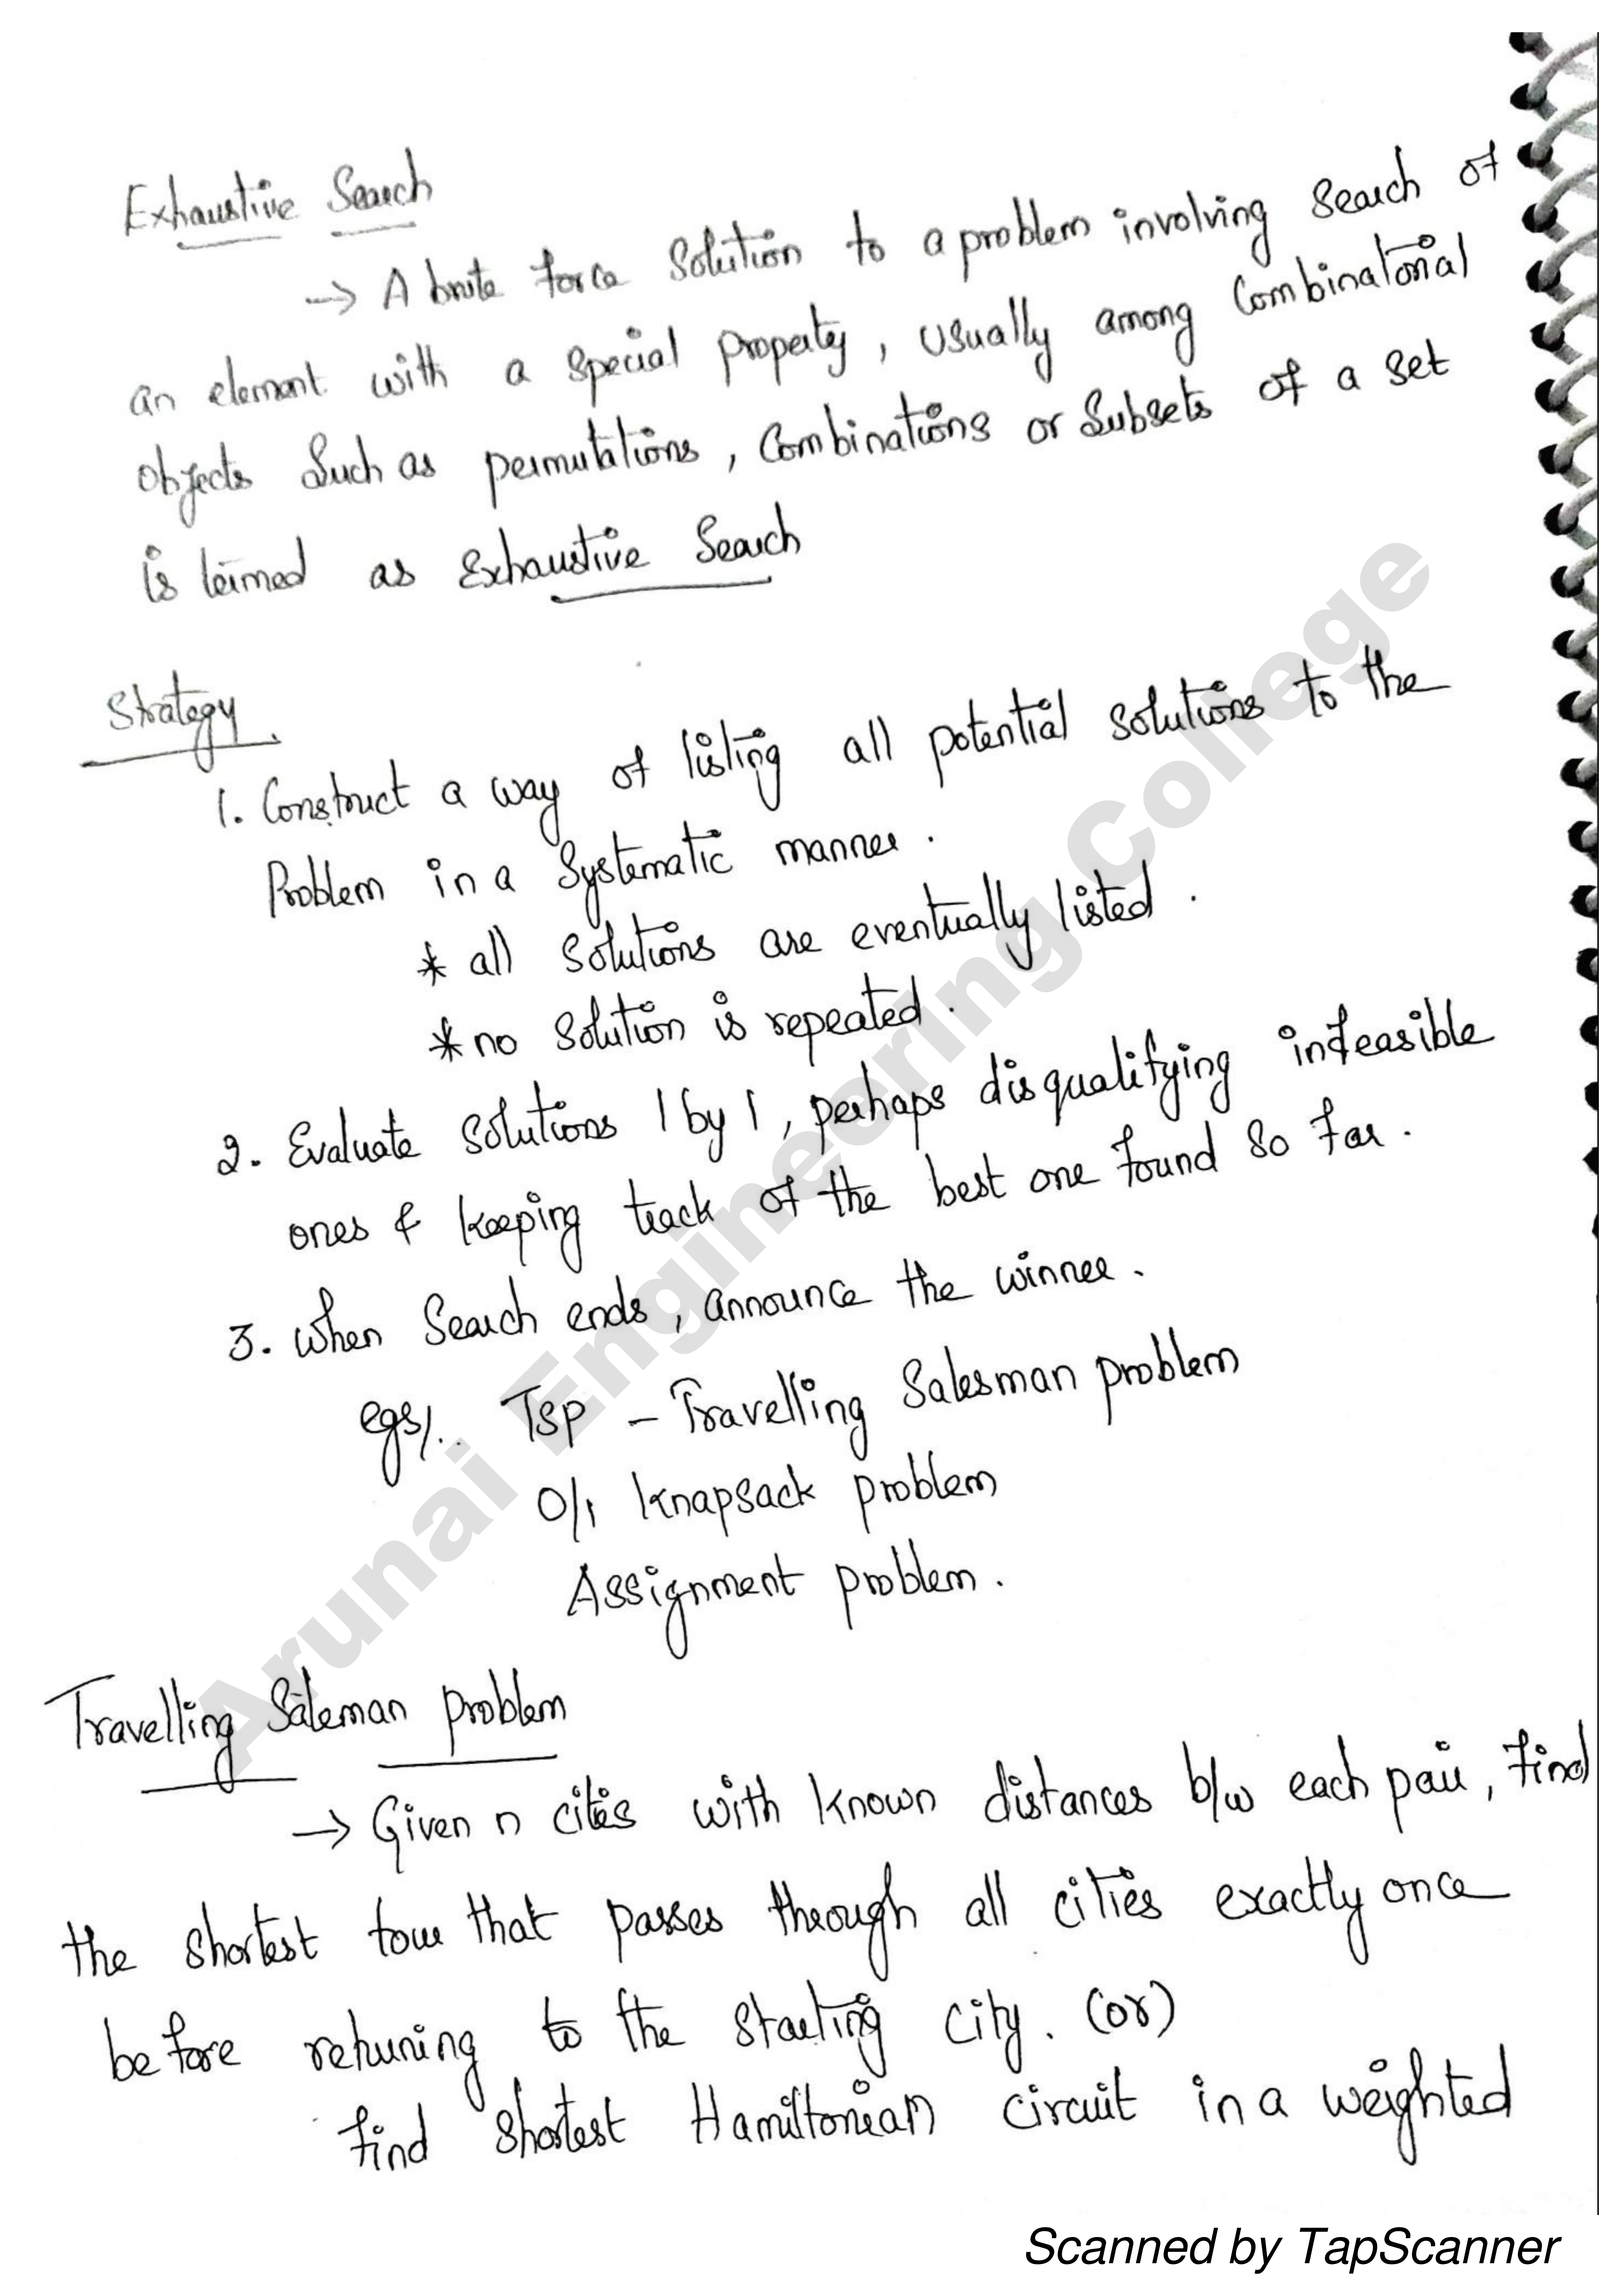 Exhaustive Search
→ A brute force solution to a problem involving search of
an element with a special property, usually among combinatorial
objects such as permutations, combinations or subsets of a set
is termed as exhaustive search
Strategy
1. Construct a way of listing all potential solutions to the
Problem in a systematic manner.
* all solutions are eventually listed.
* no solution is repeated.
2. Evaluate solutions 1 by 1, perhaps disqualifying infeasible
ones & keeping track of the best one found so far.
3. When search ends, announce the winner.
egs/.. TSP - Travelling Salesman problem
0/1 Knapsack problem
Assignment problem.
Travelling Saleman problem
→ Given n cities with known distances b/w each pair, find
the shortest tour that passes through all cities exactly once
before retuning to the starting city. (or)
find shortest Hamiltonian circuit in a weighted
Arunai Engineering College
Scanned by TapScanner